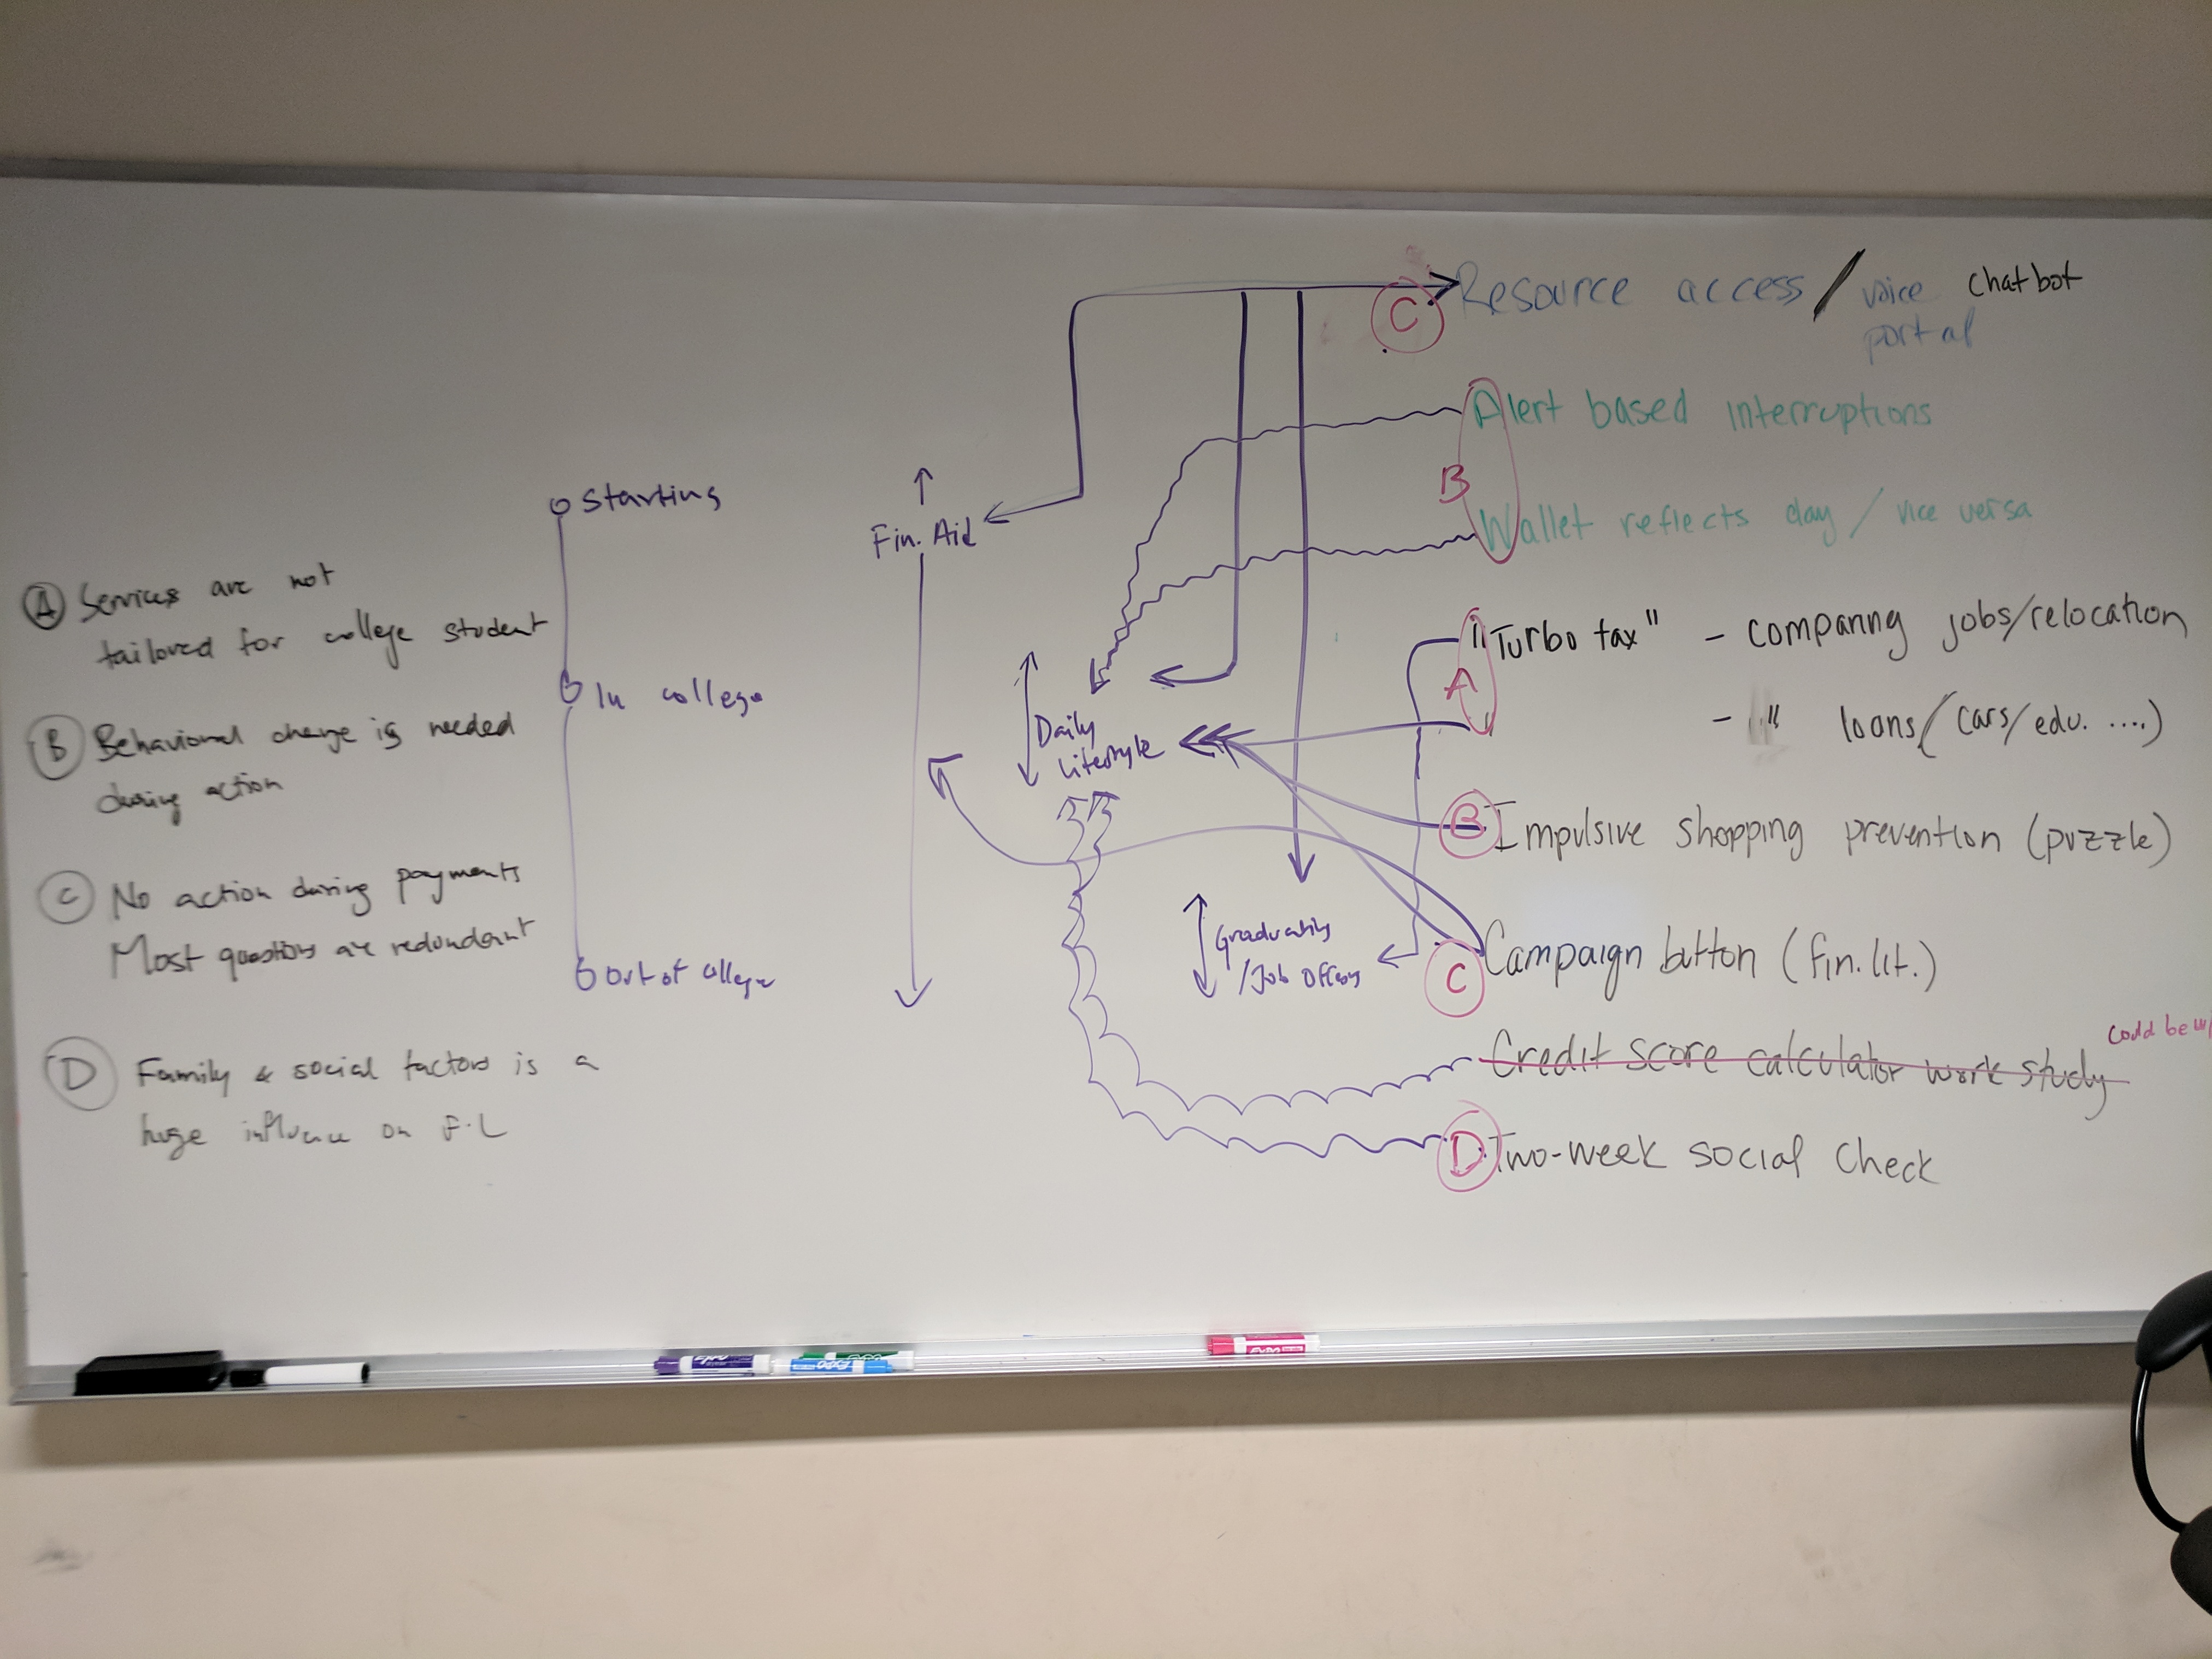 A Services are not
tailored for college student
B Behavioral change is needed
during action
C No action during payments
Most questions are redundant
D Family & social factors is a
huge influence on F.L
Starting
In college
Out of college
Fin. Aid
Daily
Lifestyle
Graduating
/Job offers
C Resource access / voice chatbot
portal
Alert based interruptions
B
Wallet reflects day / vice versa
"Turbo tax" - comparing jobs/relocation
A
- " loans (cars/edu. ....)
B Impulsive shopping prevention (puzzle)
C Campaign button (fin. lit.)
Credit score calculator work study
could be w/
D Two-week social check
EXPO
EXPO
EXPO